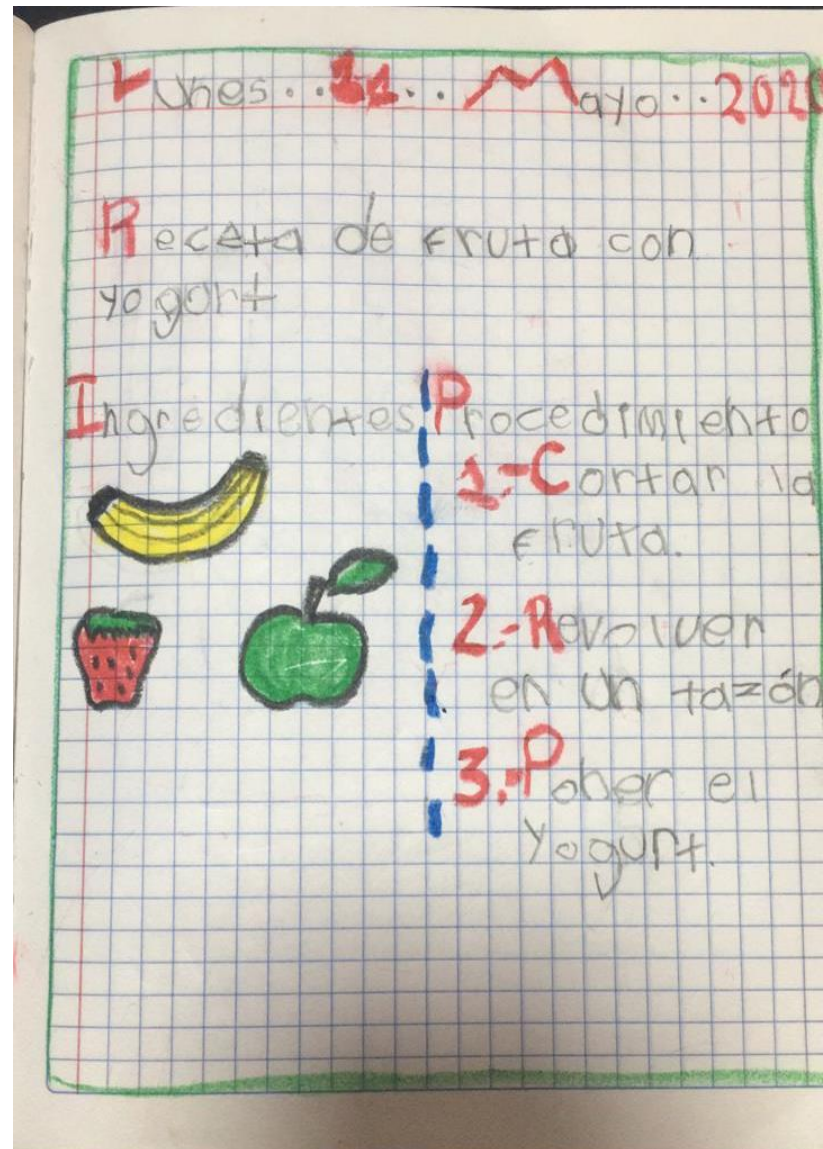 Lunes..11..Mayo..2020
Receta de fruta con
yogort
Ingredientes
Procedimiento
1.-Cortar la
fruta.
2.-Revolver
en un tazón
3.-Poner el
yogurt.